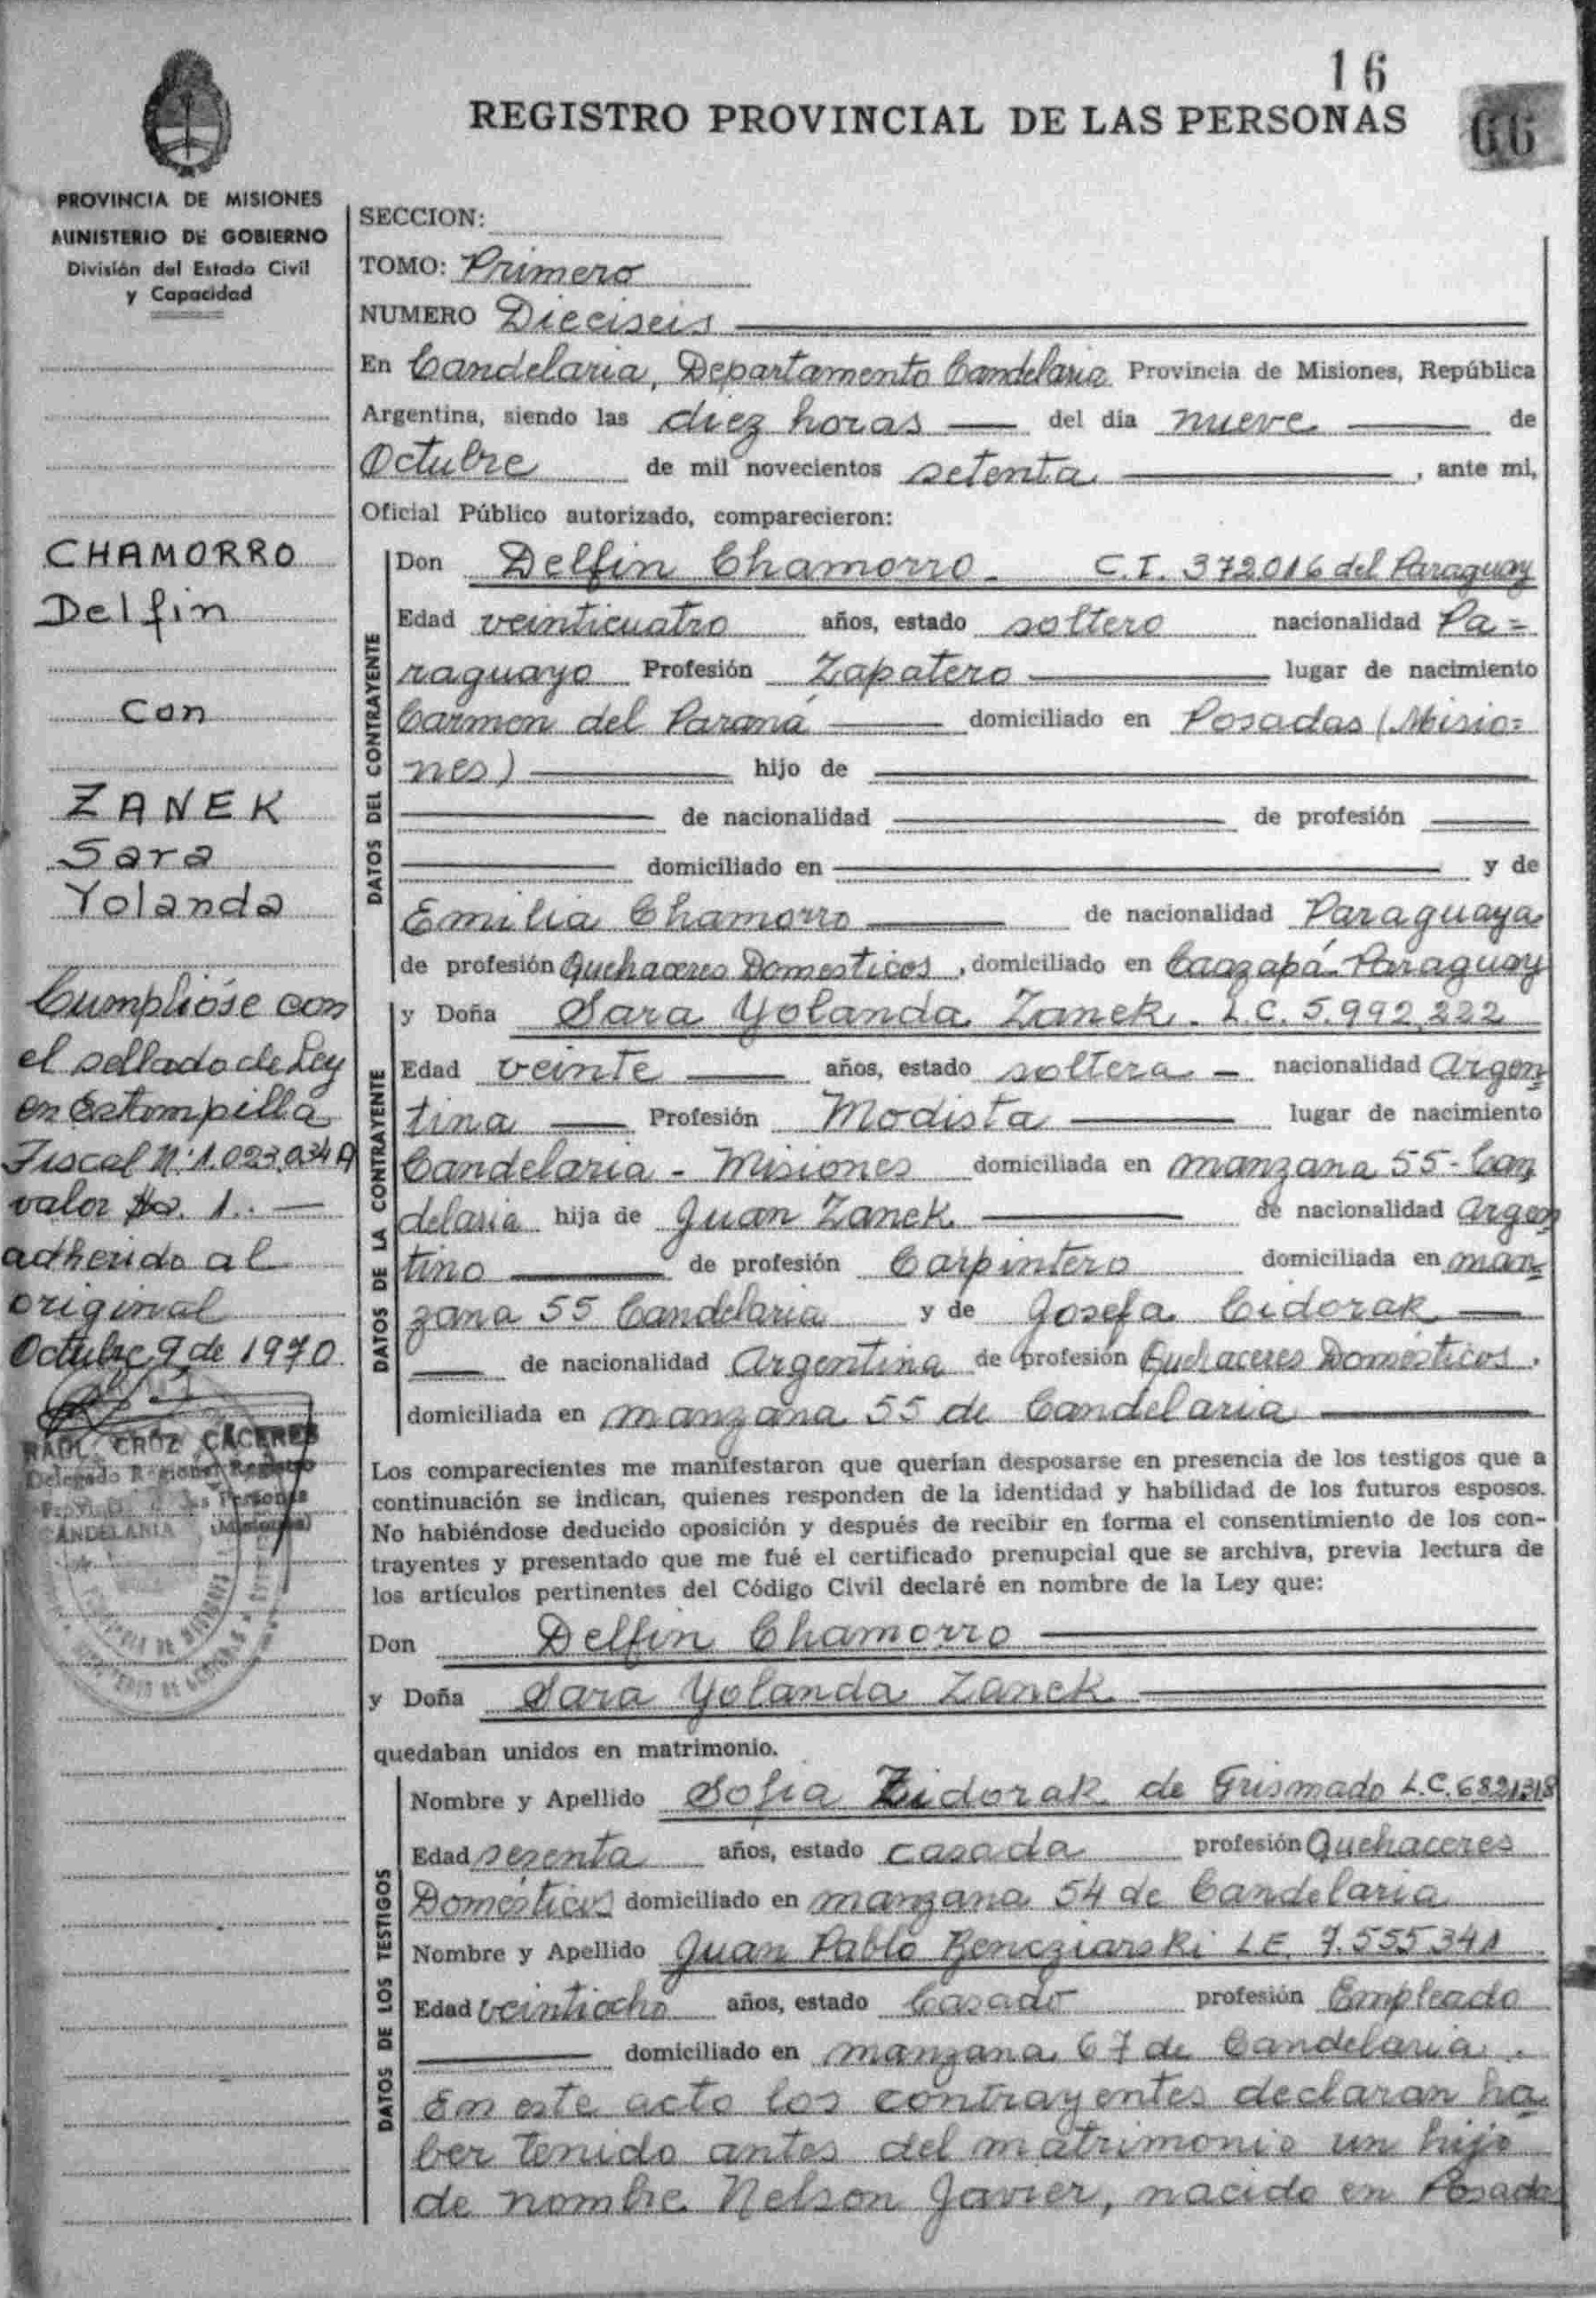 16
REGISTRO PROVINCIAL DE LAS PERSONAS
66
PROVINCIA DE MISIONES
MINISTERIO DE GOBIERNO
División del Estado Civil
y Capacidad
CHAMORRO
Delfin
Con
ZANEK
Sara
Yolanda
Cumplióse con
el sellado de Ley
en Estampilla
Fiscal Nº 1.023.034 A
valor $a. 1.. —
adherido al
original
Octubre 9 de 1970
RAUL CRUZ CACERES
Delegado Regional Registro
Personas
CANDELARIA (Misiones)
SECCION:
TOMO: Primero
NUMERO Dieciseis
En Candelaria, Departamento Candelaria Provincia de Misiones, República
Argentina, siendo las diez horas — del día nueve — de
Octubre de mil novecientos setenta —, ante mi,
Oficial Público autorizado, comparecieron:
DATOS DEL CONTRAYENTE
Don Delfin Chamorro - C.I. 372.016 del Paraguay
Edad veinticuatro años, estado soltero nacionalidad Pa=
raguayo Profesión Zapatero — lugar de nacimiento
Carmen del Paraná — domiciliado en Posadas (Misio=
nes) — hijo de —
— de nacionalidad — de profesión —
— domiciliado en — y de
Emilia Chamorro — de nacionalidad Paraguaya
de profesión Quehaceres Domesticos, domiciliado en Caazapá-Paraguay
DATOS DE LA CONTRAYENTE
y Doña Sara Yolanda Zanek. L.C. 5.992.222
Edad veinte — años, estado soltera - nacionalidad Argen=
tina — Profesión Modista — lugar de nacimiento
Candelaria - Misiones domiciliada en manzana 55-Can
delaria hija de Juan Zanek. — de nacionalidad Argen
tino — de profesión Carpintero domiciliada en man=
zana 55 Candelaria y de Josefa Cidorak —
— de nacionalidad Argentina de profesión Quehaceres Domésticos.
domiciliada en manzana 55 de Candelaria —
Los comparecientes me manifestaron que querían desposarse en presencia de los testigos que a
continuación se indican, quienes responden de la identidad y habilidad de los futuros esposos.
No habiéndose deducido oposición y después de recibir en forma el consentimiento de los con-
trayentes y presentado que me fué el certificado prenupcial que se archiva, previa lectura de
los artículos pertinentes del Código Civil declaré en nombre de la Ley que:
Don Delfin Chamorro —
y Doña Sara Yolanda Zanek. —
quedaban unidos en matrimonio.
DATOS DE LOS TESTIGOS
Nombre y Apellido Sofia Cidorak de Grismado L.C. 6821318
Edad sesenta años, estado casada profesión Quehaceres
Domésticos domiciliado en manzana 54 de Candelaria
Nombre y Apellido Juan Pablo L.E. 7.555.341
Edad veintiocho años, estado Casado profesión Empleado
— domiciliado en manzana 67 de Candelaria.
En este acto los contrayentes declaran ha
ber tenido antes del matrimonio un hijo
de nombre Nelson Javier, nacido en Posadas